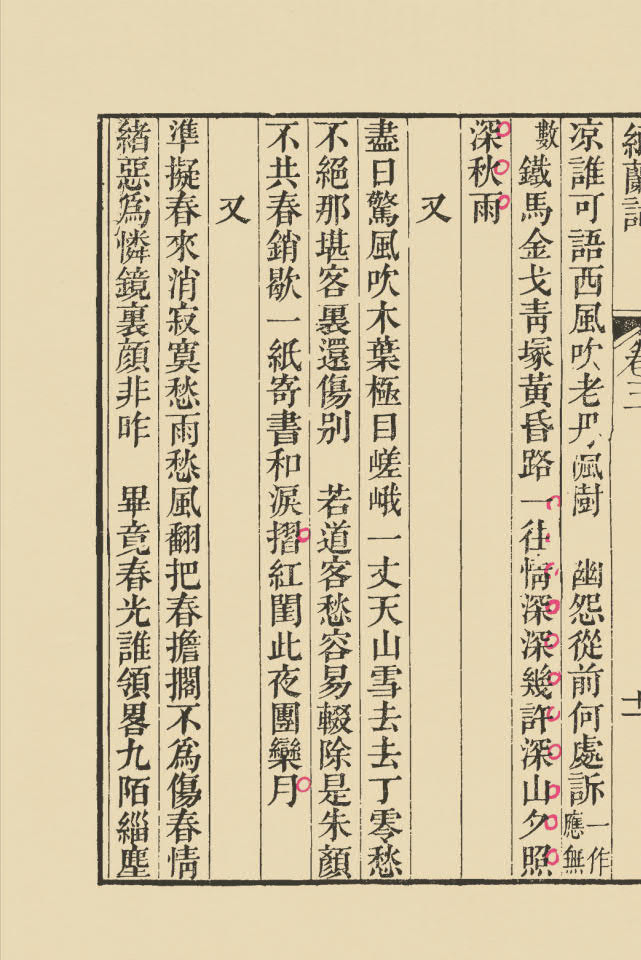 蘭詞
卷三
十一
凉誰可語西風吹老丹楓樹　幽怨從前何處訴一作應無
數鐵馬金戈青塚黃昏路一往情深深幾許深山夕照
深秋雨
又
盡日驚風吹木葉極目嵯峨一丈天山雪去去丁零愁
不絕那堪客裏還傷別　若道客愁容易輟除是朱顏
不共春銷歇一紙寄書和淚摺紅閨此夜團欒月
又
準擬春來消寂寞愁雨愁風翻把春擔擱不爲傷春情
緒惡爲憐鏡裏顏非昨　畢竟春光誰領畧九陌緇塵